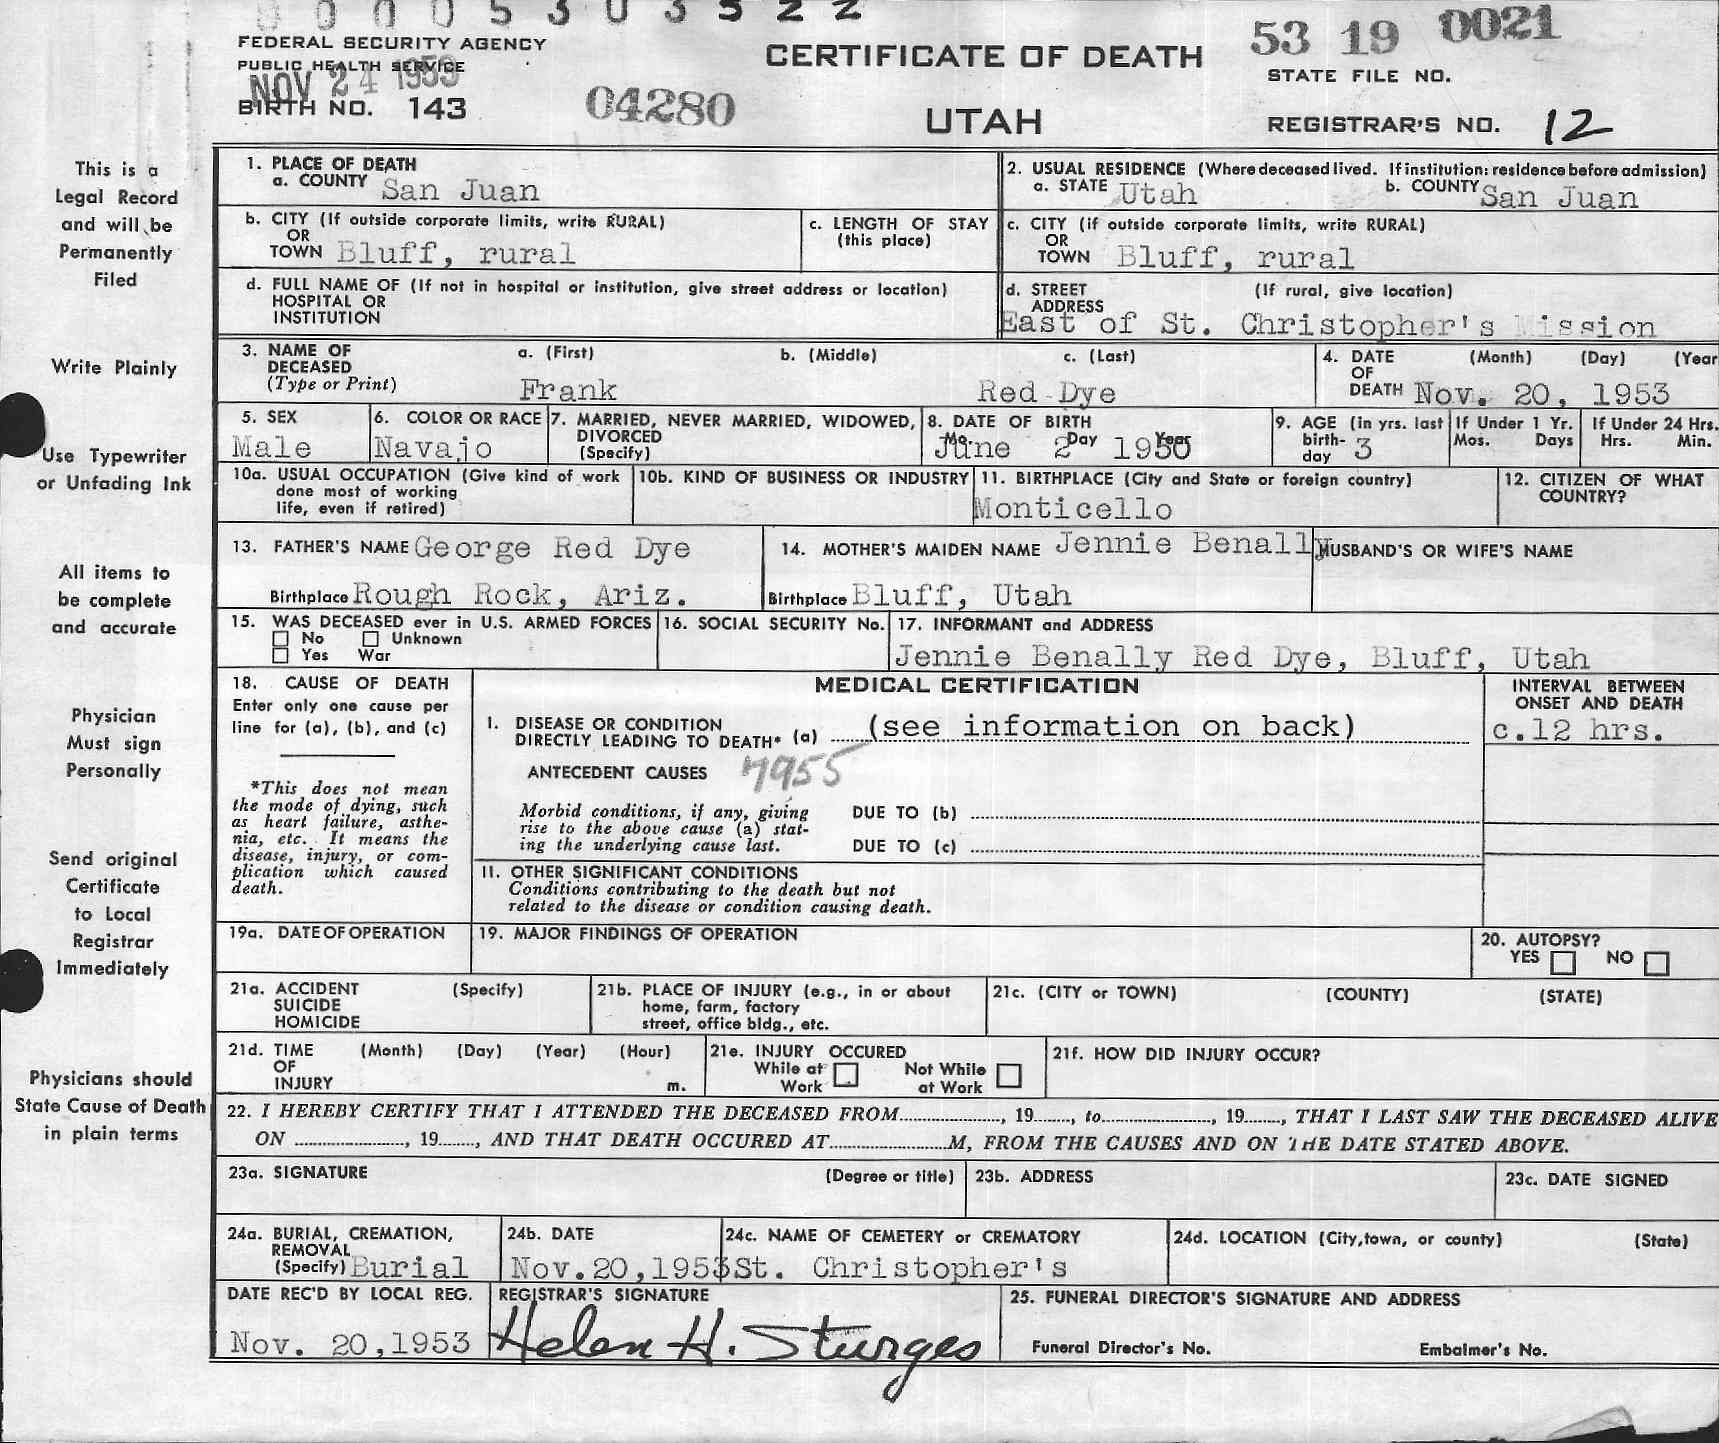 0 0 0 5 3 0 3 5 2 2
FEDERAL SECURITY AGENCY
PUBLIC HEALTH SERVICE
NOV 24 1953
BIRTH NO. 143
04280
CERTIFICATE OF DEATH
UTAH
53 19 0021
STATE FILE NO.
REGISTRAR'S NO. 12
This is a
Legal Record
and will be
Permanently
Filed
Write Plainly
Use Typewriter
or Unfading Ink
All items to
be complete
and accurate
Physician
Must sign
Personally
Send original
Certificate
to Local
Registrar
Immediately
Physicians should
State Cause of Death
in plain terms
1. PLACE OF DEATH
a. COUNTY San Juan
2. USUAL RESIDENCE (Where deceased lived. If institution: residence before admission)
a. STATE Utah b. COUNTY San Juan
b. CITY (If outside corporate limits, write RURAL)
OR
TOWN Bluff, rural
c. LENGTH OF STAY
(this place)
c. CITY (if outside corporate limits, write RURAL)
OR
TOWN Bluff, rural
d. FULL NAME OF (If not in hospital or institution, give street address or location)
HOSPITAL OR
INSTITUTION
d. STREET (If rural, give location)
ADDRESS
East of St. Christopher's Mission
3. NAME OF DECEASED
(Type or Print)
a. (First) b. (Middle) c. (Last)
Frank Red Dye
4. DATE (Month) (Day) (Year
OF
DEATH Nov. 20, 1953
5. SEX
Male
6. COLOR OR RACE
Navajo
7. MARRIED, NEVER MARRIED, WIDOWED,
DIVORCED
(Specify)
8. DATE OF BIRTH
Mo. Day Year
June 2 1950
9. AGE (in yrs. last
birth-
day 3
If Under 1 Yr.
Mos. Days
If Under 24 Hrs.
Hrs. Min.
10a. USUAL OCCUPATION (Give kind of work
done most of working
life, even if retired)
10b. KIND OF BUSINESS OR INDUSTRY
11. BIRTHPLACE (City and State or foreign country)
Monticello
12. CITIZEN OF WHAT
COUNTRY?
13. FATHER'S NAME George Red Dye
Birthplace Rough Rock, Ariz.
14. MOTHER'S MAIDEN NAME Jennie Benally
Birthplace Bluff, Utah
HUSBAND'S OR WIFE'S NAME
15. WAS DECEASED ever in U.S. ARMED FORCES
No Unknown
Yes War
16. SOCIAL SECURITY No.
17. INFORMANT and ADDRESS
Jennie Benally Red Dye, Bluff, Utah
18. CAUSE OF DEATH
Enter only one cause per
line for (a), (b), and (c)
*This does not mean
the mode of dying, such
as heart failure, asthe-
nia, etc. It means the
disease, injury, or com-
plication which caused
death.
MEDICAL CERTIFICATION
I. DISEASE OR CONDITION
DIRECTLY LEADING TO DEATH* (a) (see information on back)
ANTECEDENT CAUSES 7955
Morbid conditions, if any, giving
rise to the above cause (a) stat-
ing the underlying cause last.
DUE TO (b)
DUE TO (c)
11. OTHER SIGNIFICANT CONDITIONS
Conditions contributing to the death but not
related to the disease or condition causing death.
INTERVAL BETWEEN
ONSET AND DEATH
c.12 hrs.
19a. DATE OF OPERATION
19. MAJOR FINDINGS OF OPERATION
20. AUTOPSY?
YES NO
21a. ACCIDENT (Specify)
SUICIDE
HOMICIDE
21b. PLACE OF INJURY (e.g., in or about
home, farm, factory
street, office bldg., etc.
21c. (CITY or TOWN) (COUNTY) (STATE)
21d. TIME (Month) (Day) (Year) (Hour)
OF
INJURY m.
21e. INJURY OCCURED
While at Work
Not While at Work
21f. HOW DID INJURY OCCUR?
22. I HEREBY CERTIFY THAT I ATTENDED THE DECEASED FROM............, 19......, to............, 19......, THAT I LAST SAW THE DECEASED ALIVE
ON ............, 19......, AND THAT DEATH OCCURED AT............M, FROM THE CAUSES AND ON THE DATE STATED ABOVE.
23a. SIGNATURE (Degree or title)
23b. ADDRESS
23c. DATE SIGNED
24a. BURIAL, CREMATION,
REMOVAL
(Specify) Burial
24b. DATE
Nov.20,1953
24c. NAME OF CEMETERY or CREMATORY
St. Christopher's
24d. LOCATION (City,town, or county) (State)
DATE REC'D BY LOCAL REG.
Nov. 20,1953
REGISTRAR'S SIGNATURE
Helen H. Sturges
25. FUNERAL DIRECTOR'S SIGNATURE AND ADDRESS
Funeral Director's No. Embalmer's No.